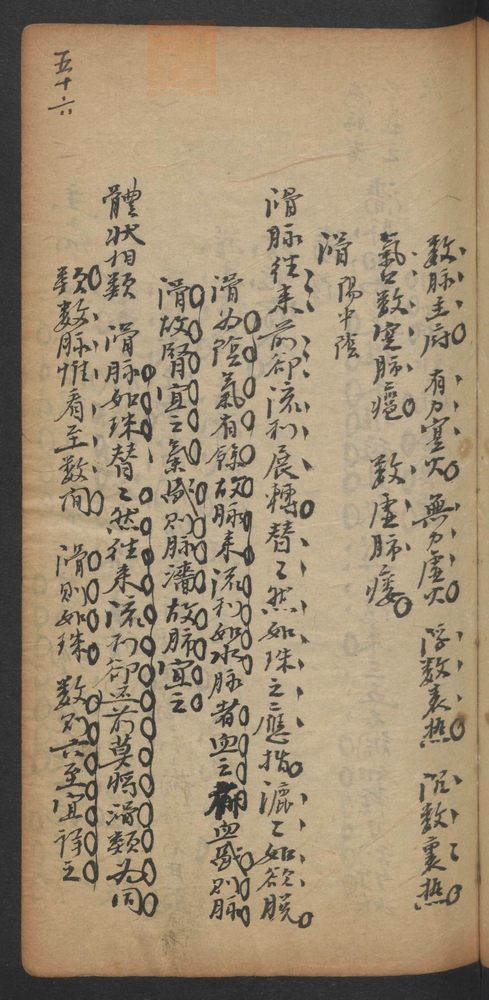 數脉主府 有力實火 無力虛火 浮數表熱 沉數裏熱
氣口數實肺癰 數虛肺痿
滑 陽中陰
滑脉往来前却流利展轉替〻然如珠之應指漉〻如欲脱
滑為陰氣有餘故脉来流利如水脉者血之府血盛則脉
滑故腎宜之氣盛則脉濇故肺宜之
體狀相類 滑脉如珠替〻然往来流利却还前莫將滑類為同
類數脉惟看至數间 滑則如珠 數則六至宜詳之
五十六